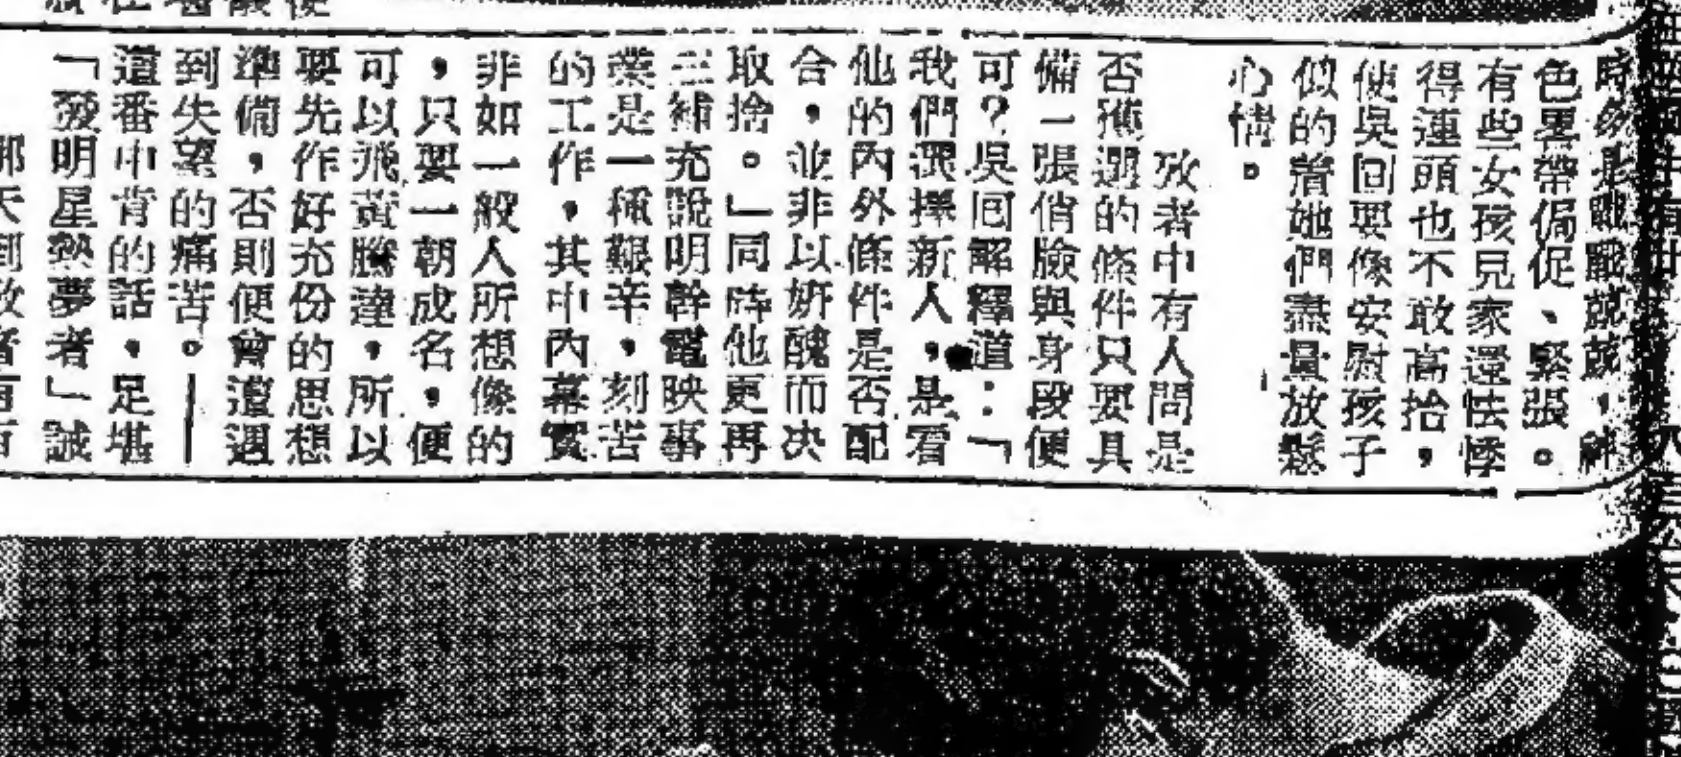 時紛是戰戰兢兢，神
色畧帶侷促、緊張。
有些女孩見家還怯悸
得連頭也不敢高抬，
使吳回要像安慰孩子
似的着她們盡量放鬆
心情。
攷者中有人問是
否獲選的條件只要具
備一張俏臉與身段便
可？吳回解釋道：「
我們選擇新人，是看
他的內外條件是否配
合，並非以妍醜而決
取捨。」同時他更再
三補充說明幹電映事
業是一種艱辛，刻苦
的工作，其中內幕實
非如一般人所想像的
，只要一朝成名，便
可以飛黃騰達，所以
要先作好充份的思想
準備，否則便會遭遇
到失望的痛苦。——
這番中肯的話，足堪
「發明星熱夢者」誠